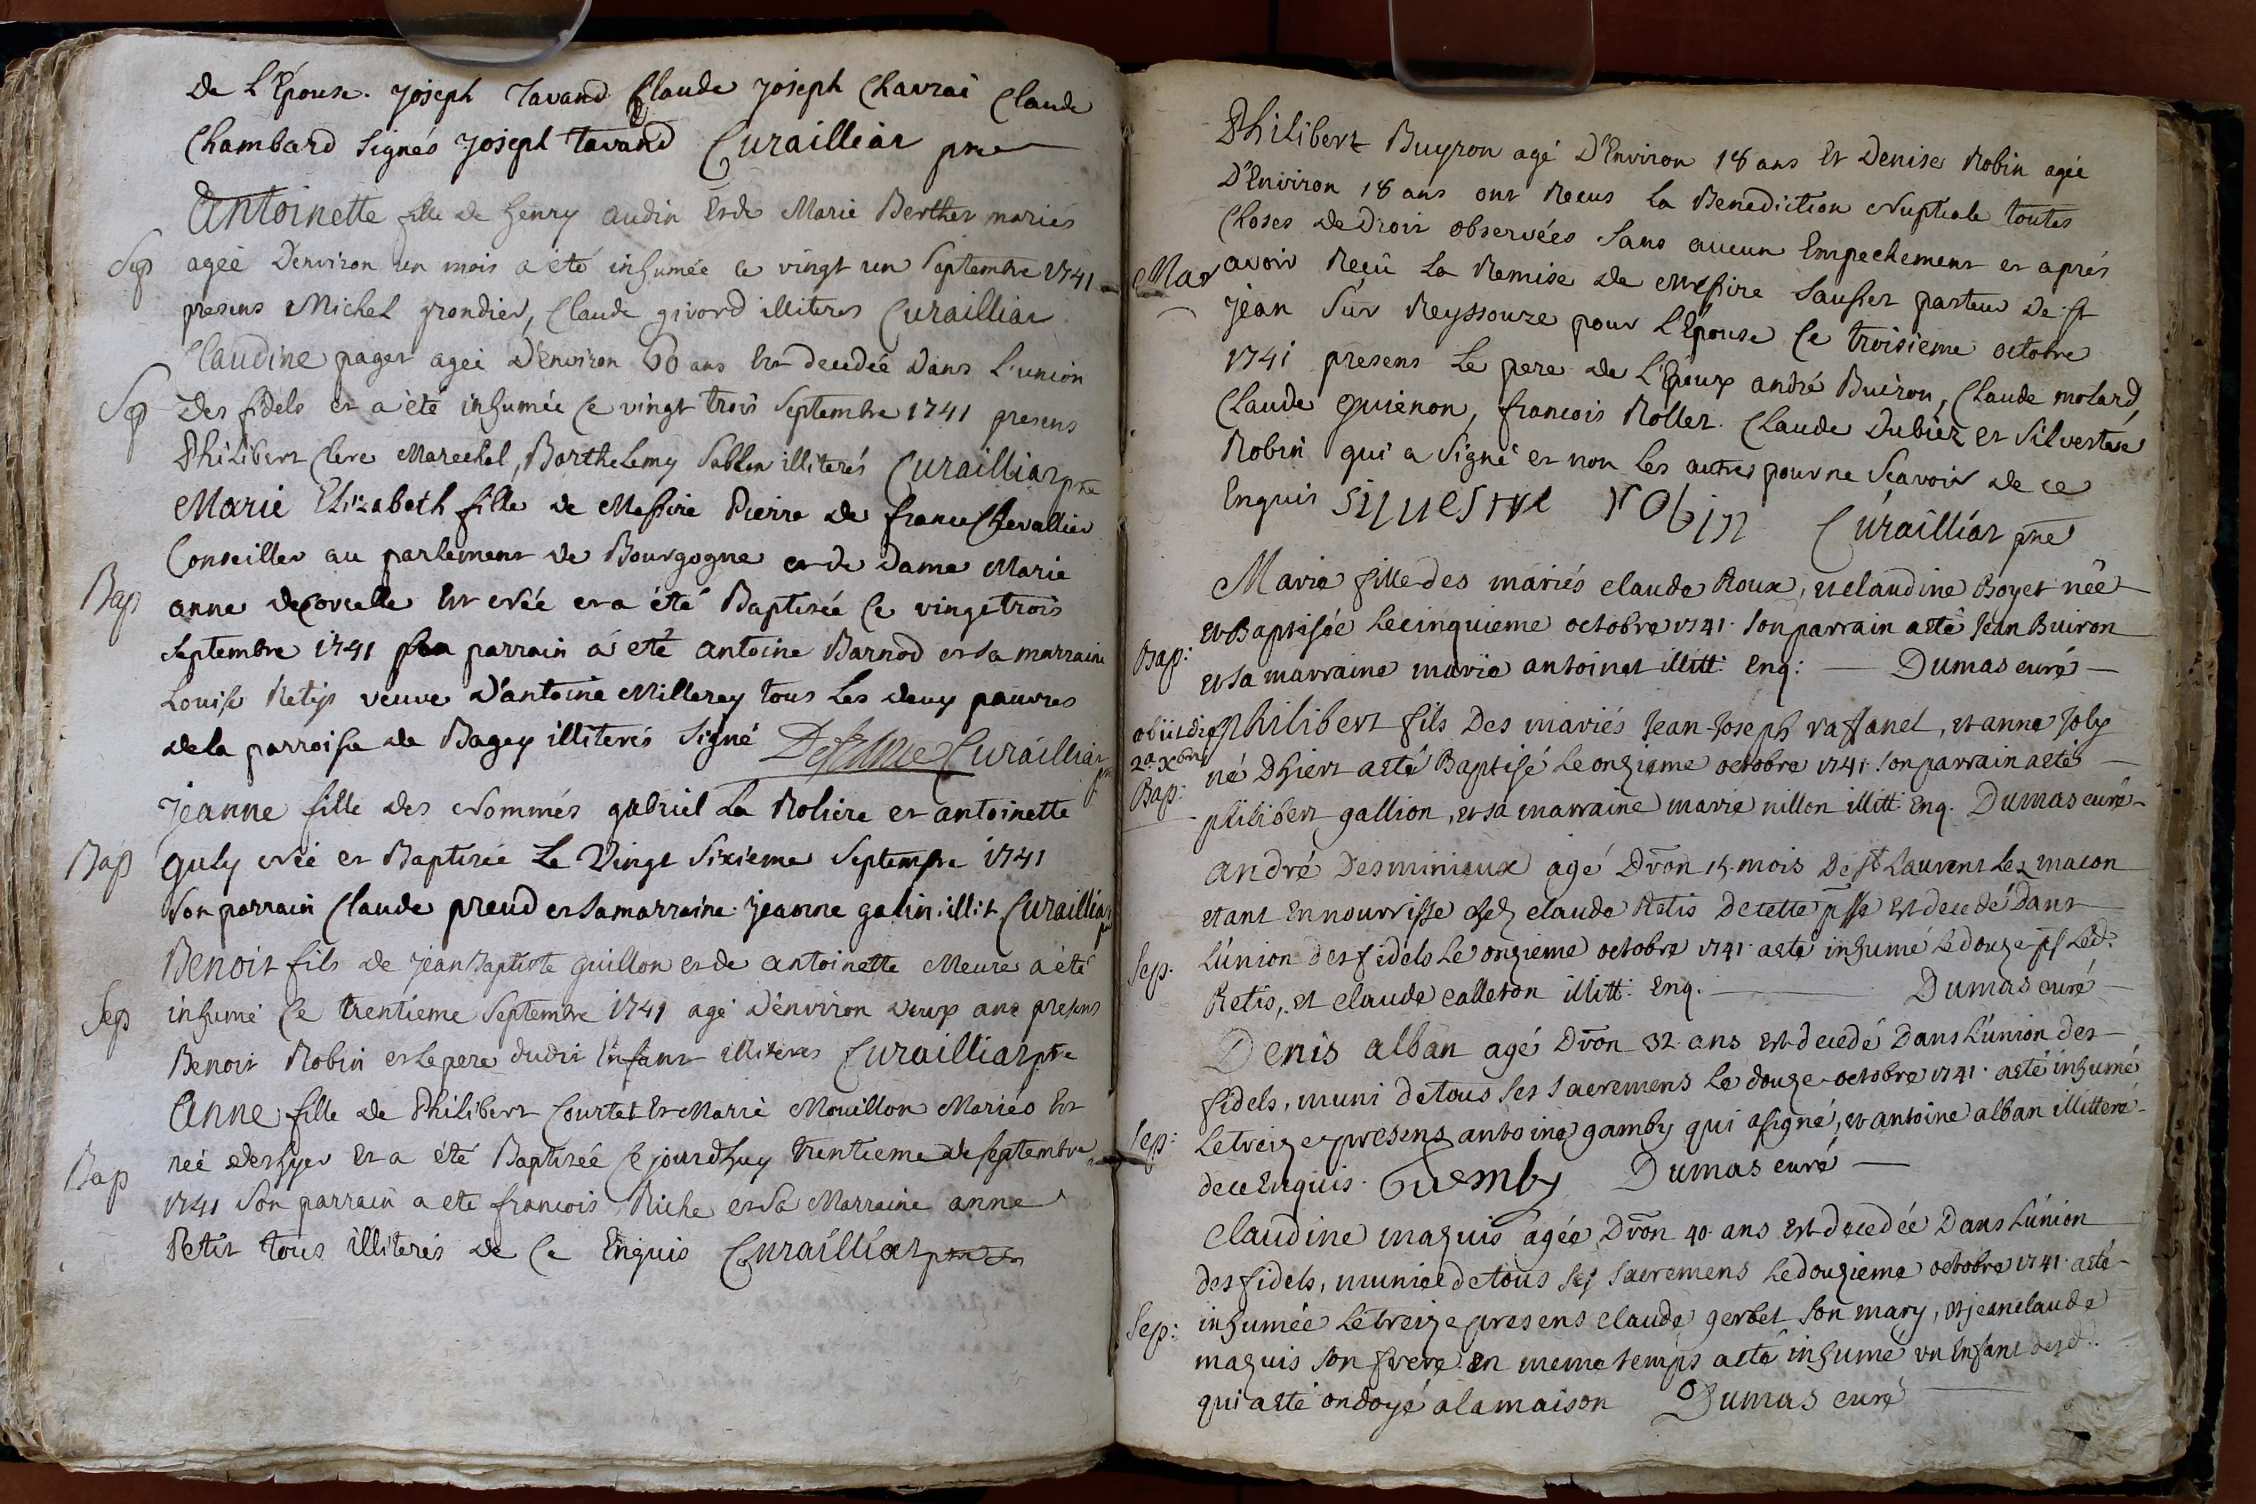 de L'Epouse. Joseph Tavand Claude Joseph Chavrai Claude
Chambard signés Joseph tavand Curailliat pre
Antoinette fille de henry audin et de Marie Berthet mariés
Sep
agéé D'environ un mois a été inhumée ce vingt un Septembre 1741
presens Michel grondier, Claude givord illiteres Curailliat
Claudine paget agéé D'Environ 60 ans est decedée Dans L'union
Sep
Des fidels et a été inhumée Ce vingt trois Septembre 1741 presens
Philibert Clere Marechal, Barthelemy Sablon illiterés Curailliat pre
Marie Elizabeth fille de Messire Pierre de franc Chevallier
Conseiller au parlement de Bourgogne et de Dame Marie
Bap
anne deCorcelle Est née et a été Baptisée Ce vingt trois
Septembre 1741 parrain a été antoine Barnod et sa marraine
Louise Retis veuve D'antoine Millerey tous Les deux pauvres
de la parroisse de Bagey illiterés Signé Curailliat pre
Jeanne fille des Nommés gabriel La Roliere et antoinette
Bap
guly Née et Baptisée Le Vingt Sixieme Septempre 1741
Son parrain Claude preud et sa marraine Jeanne galin illit Curailliat pre
Benoit fils de Jean Baptiste guillon et de antoinette Meure a été
Sep
inhumé Ce trentieme Septembre 1741 agé d'environ deux ans presens
Benoit Robin et Le pere dudit Enfant illiteres Curailliat pre
Anne fille de Philibert Courtet Et Marie Mouillon Mariés Est
Bap
neé d'ehyer Et a été Baptisée Ce jourdhuy trentieme de Septembre
1741 Son parrain a eté francois Riche et sa Marraine anne
Petit tous illiterés de Ce Enquis Curailliat pre
Philibert Buyron agé D'Environ 18 ans Et Denise Robin agée
D'Environ 18 ans ont Recus La Benediction Nuptiale toutes
Choses de Droit observées Sans aucun Empechement et aprés
Mar
avoir Reçû La Remise de Messire Sauset pasteur De St
Jean Sur Reyssouze pour L'Epouse Ce troisieme octobre
1741 presens Le pere de L'Epoux andré Buiron, Claude molard,
Claude guienon, francois Rollet. Claude Dubiez et Silvestre
Robin qui a Signé et non Les autres pour ne Sçavoir de ce
Enquis silvestre robin Curailliat pre
Marie fille des mariés claude Roux, et claudine Boyet née
et Baptisée le cinquieme octobre 1741. son parrain a eté Jean Buiron
Bap:
et sa marraine marie antoinet illitt: Enq: Dumas curé
obiit die
2a Xbris
Bap:
philibert fils Des mariés Jean-Joseph raffanel, et anne Joly
né D'hiert a eté Baptisé Le onzieme octobre 1741. son parrain a eté
philibert gallion, et sa marraine marie nillon illitt. Enq. Dumas curé
andré Desminieux agé D'von 15 mois De St Laurent Lez macon
etant En nourrisse chez claude Retis de cette psse Est decedé Dans
Sep.
L'union des fidels Le onzieme octobre 1741. a eté inhumé Le douze pst Led.
Retis, et claude calleton illitt: Enq. Dumas curé
Denis alban agé D'von 32 ans Est decedé Dans L'union des
fidels, muni de tous ses sacremens Le douze octobre 1741. a eté inhumé
Sep:
Le treize presens antoine gamby qui a signé, et antoine alban illitteré
de ce Enquis. Guemby Dumas curé
Claudine maguis agée D'von 40 ans Est decedée Dans L'union
des fidels, munie de tous ses sacremens Le douzieme octobre 1741. a eté
Sep:
inhumée Le treize presens claude gerbet son mary, et jeanclaude
maguis son frere. En meme temps a eté inhumé un Enfant desd.
qui a eté ondoyé a la maison Dumas curé